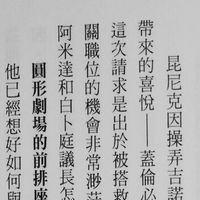 昆尼克因操弄吉諾
帶來的喜悅——蓋倫必
這次請求是出於被搭救
關職位的機會非常渺茫
阿米達和白卜庭議長怎
圓形劇場的前排座
他已經想好如何與